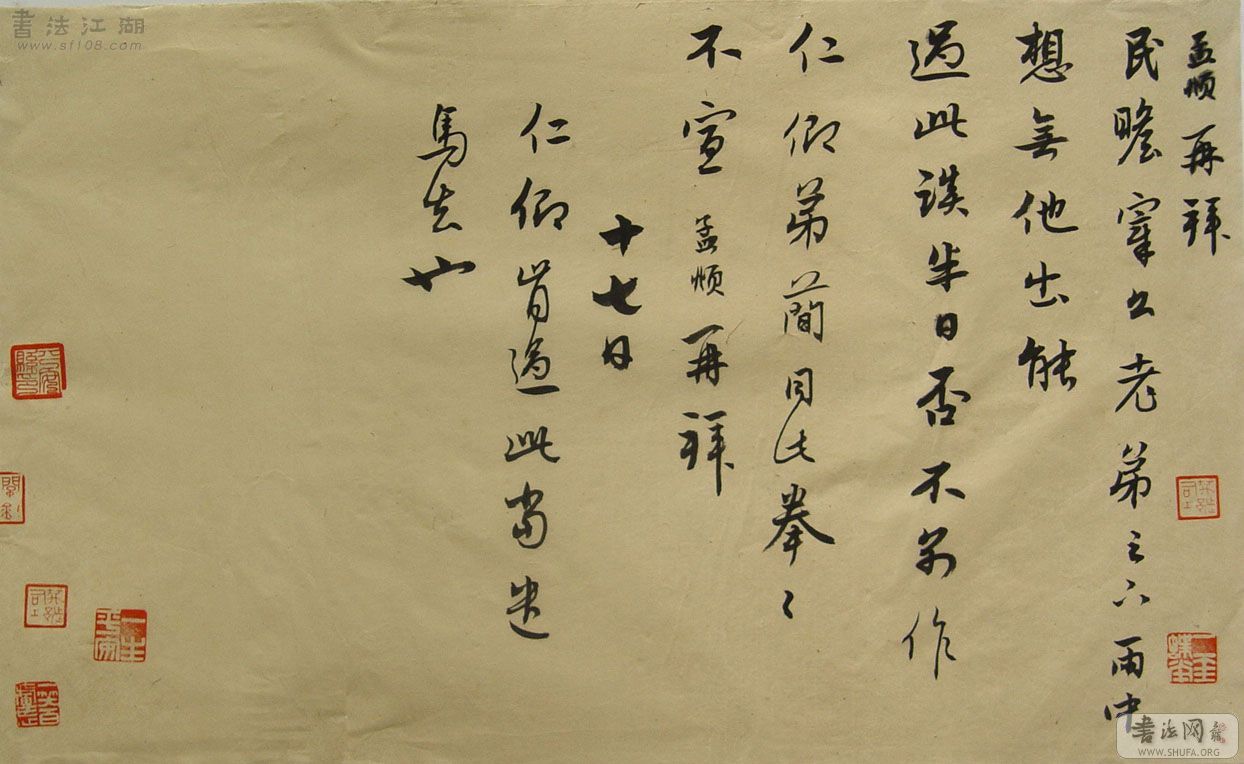 孟頫再拜
民瞻宰公老弟足下雨中
想無他出能
過此談半日否不別作
仁卿弟簡同此拳〻
不宣 孟頫再拜
十七日
仁卿肯過此當遣
馬去也
書法江湖
www.sf108.com
書法网
WWW.SHUFA.ORG